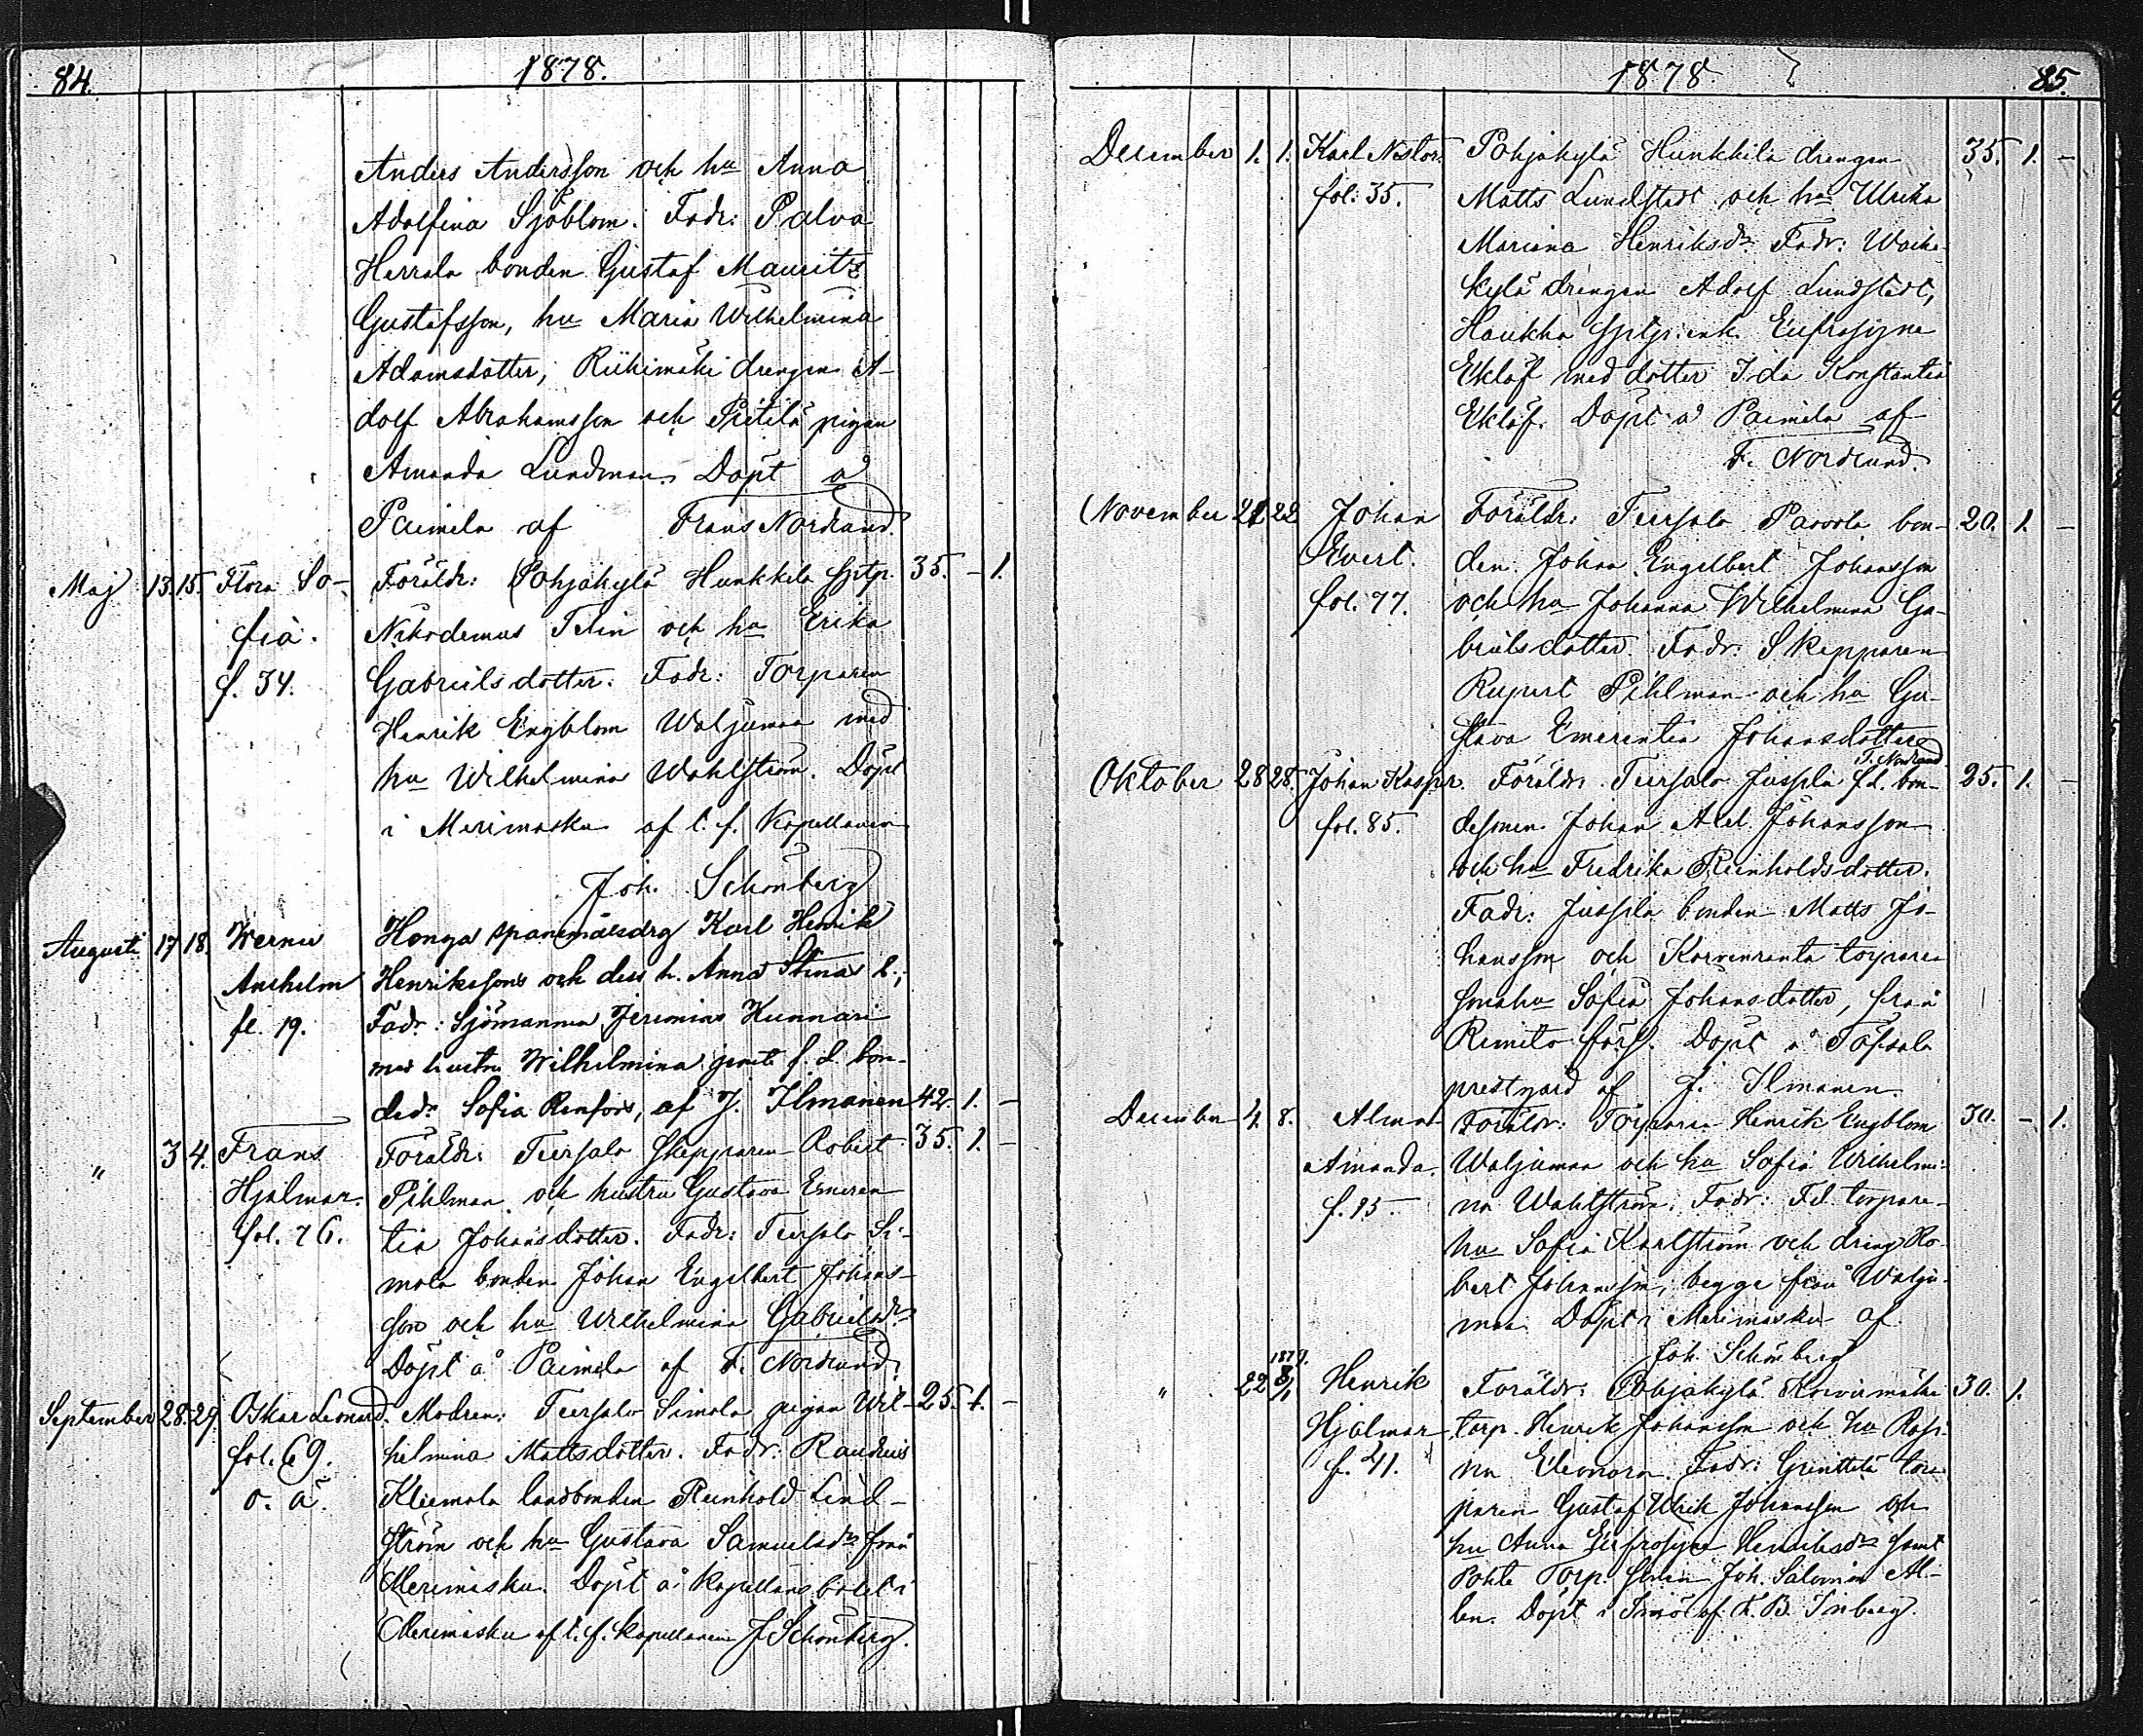 84.
1878.
Anders Andersson och hu Anna
Adolfina Sjöblom. Fadr: Palva
Herrala bonden Gustaf Mauritz
Gustafsson, hu Maria Wilhelmina
Adamsdotter, Riihimäki drengen A-
dolf Abrahamsson och Prittilä pigan
Amanda Lundman. Döpt å
Paimela af Frans Nordlund.
Maj 13. 15. Flora So- Föräldr: Pohjakylä Hunkkila 35. - 1.
fia. Nikodemus Telin och hu Erika
f. 34. Gabrielsdotter. Fadr: Torparen
Henrik Engblom Waljumaa med
hu Wilhelmina Wahlström. Döpt
i Merimasku af t. f. Kapellanen
Joh. Schönberg
Augusti 17 18. Werner Honga spanemålsdrg Karl Henrik
Anshelm Henrikssons och dess h. Anna Stinas b.,
fl. 19. Fadr: Sjömannen Jeremias Kunnari
med hustru Wilhelmina jemte f. d. bon-
dedr Sofia Renfors, af J. Ilmanen 42. 1. -
" 3 4. Frans Föräldr: Teersalo Skepparen Robert 35. 1. -
Hjalmar. Pihlman och hustru Gustava Emeren
fol. 76. tia Johansdotter. Fadr: Teersalo Si-
mola bonden Johan Engelbert Johans-
son och hu Wilhelmina Gabrielsdr
Döpt å Paimela af F. Nordlund
September 28. 29. Oskar Leonard. Modren: Teersalo Simola pigan Wil- 25. 1. -
fol. 69. helmina Mattsdotter. Fadr:
o. ä. Kliemola landbonden Reinhold Lind-
ström och hu Gustava Samuelsdr från
Merimasku. Döpt å Kapellansbolet i
Merimasku af t. f. Kapellanen J Schönberg.
1878
85.
December 1. 1. Karl Nestor. Pohjakylä Hunkkila drengen 35. 1. -
fol: 35. Matts Lundstedt och hu Ulrika
Mariana Henriksdr Fadr:
kylä drengen Adolf Lundstedt,
Haukka enk. Eufrosyne
Eklöf med dotter Ida Konstantia
Eklöf. Döpt å Paimela af
F. Nordlund.
November 21 22 Johan Föräldr: Teersalo bon- 20. 1. -
Evert. den Johan Engelbert Johansson
fol. 77. och hu Johanna Wilhelmina Ga-
brielsdotter. Fadr: Skepparen
Rupert Pihlman och hu Gu-
stava Emerentia Johansdotter
F. Nordlund
Oktober 28 28. Johan Kasper. Föräldr: Teersalo Jussila f. d. bon- 25. 1. -
fol. 85. desonen Johan Axel Johansson
och hu Fredrika Reinholdsdotter.
Fadr: Jussila bonden Matts Jo-
hansson och Korvenranta torpare
hu Sofia Johansdotter, från
Rimito förs. Döpt å Töfsala
prestgård af J. Ilmanen.
December 4. 8. Alma Föräldr: Torparen Henrik Engblom 30. - 1.
Amanda. Waljumaa och hu Sofia Wilhelmi-
f. 95. na Wahlström. Fadr: F.d. torpare-
hu Sofia Karlström och dreng Ro-
bert Johansson, begge från Walju-
maa. Döpt i Merimasku af
Joh. Schönberg
1879.
" 22 8/1 Henrik Föräldr: Pohjakylä Korvinmäki 30. 1.
Hjalmar torp. Henrik Johansson och hu Rosi-
f. 41. na Eleonora. Fadr: Grinttilä tor-
paren Gustaf Ulrik Johansson och
hu Anna Eufrosyne Henriksdr samt
Torp. Joh. Salomon Al-
len. Döpt i af F. B. Inberg.